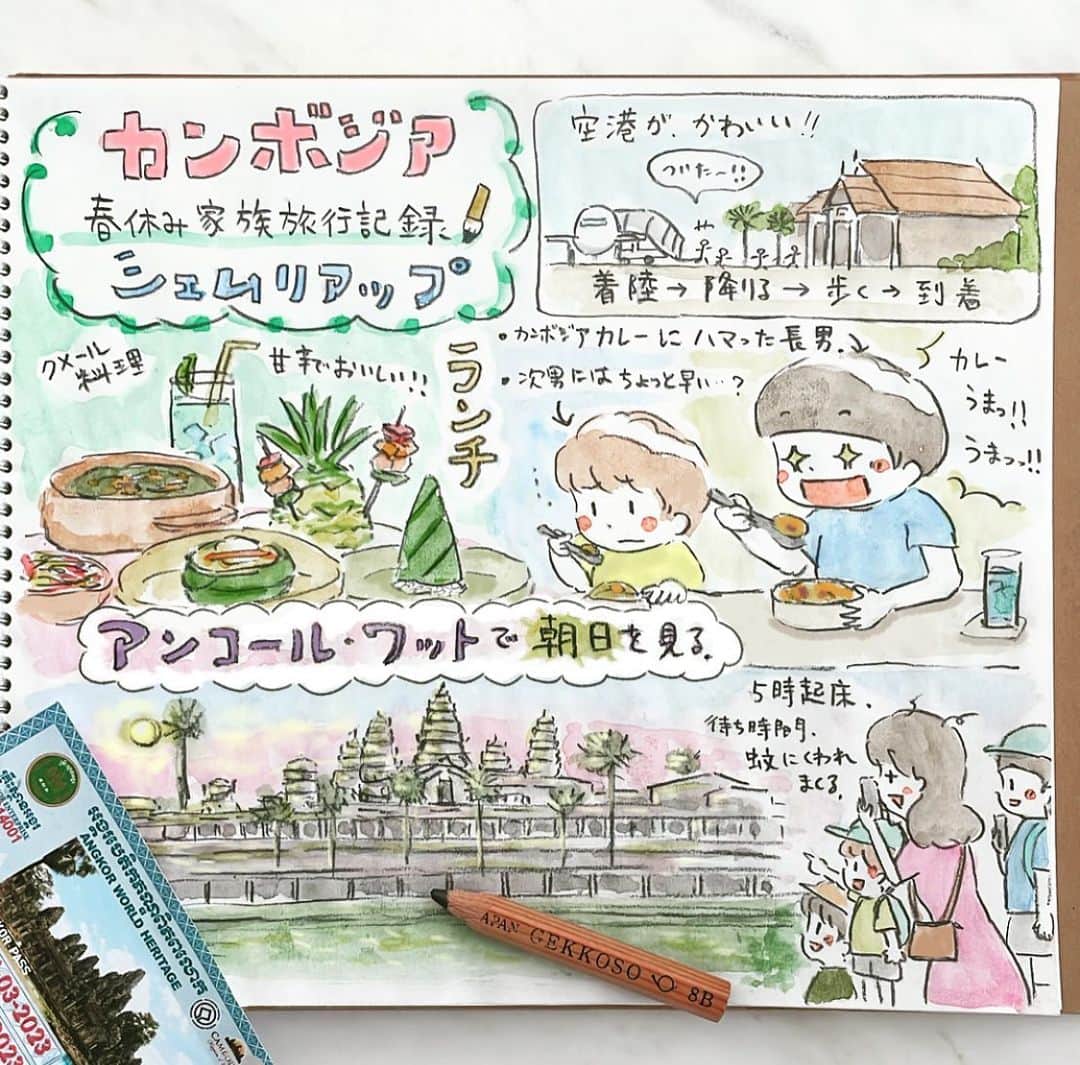 カンボジア
春休み家族旅行記録
シェムリアップ
空港が、かわいい!!
着陸→降りる→歩く→到着
クメール
料理
甘辛でおいしい!!
ランチ
・カンボジアカレーにハマった長男。
・次男にはちょっと早い…?
カレー
うまっ!!
うまっっ!!
アンコール・ワットで朝日を見る。
5時起床、
待ち時間、
蚊にくわれ
まくる。
ANGKOR WORLD HERITAGE
KOR PASS
03-2023
2023
APAN GEKKOSO 8B